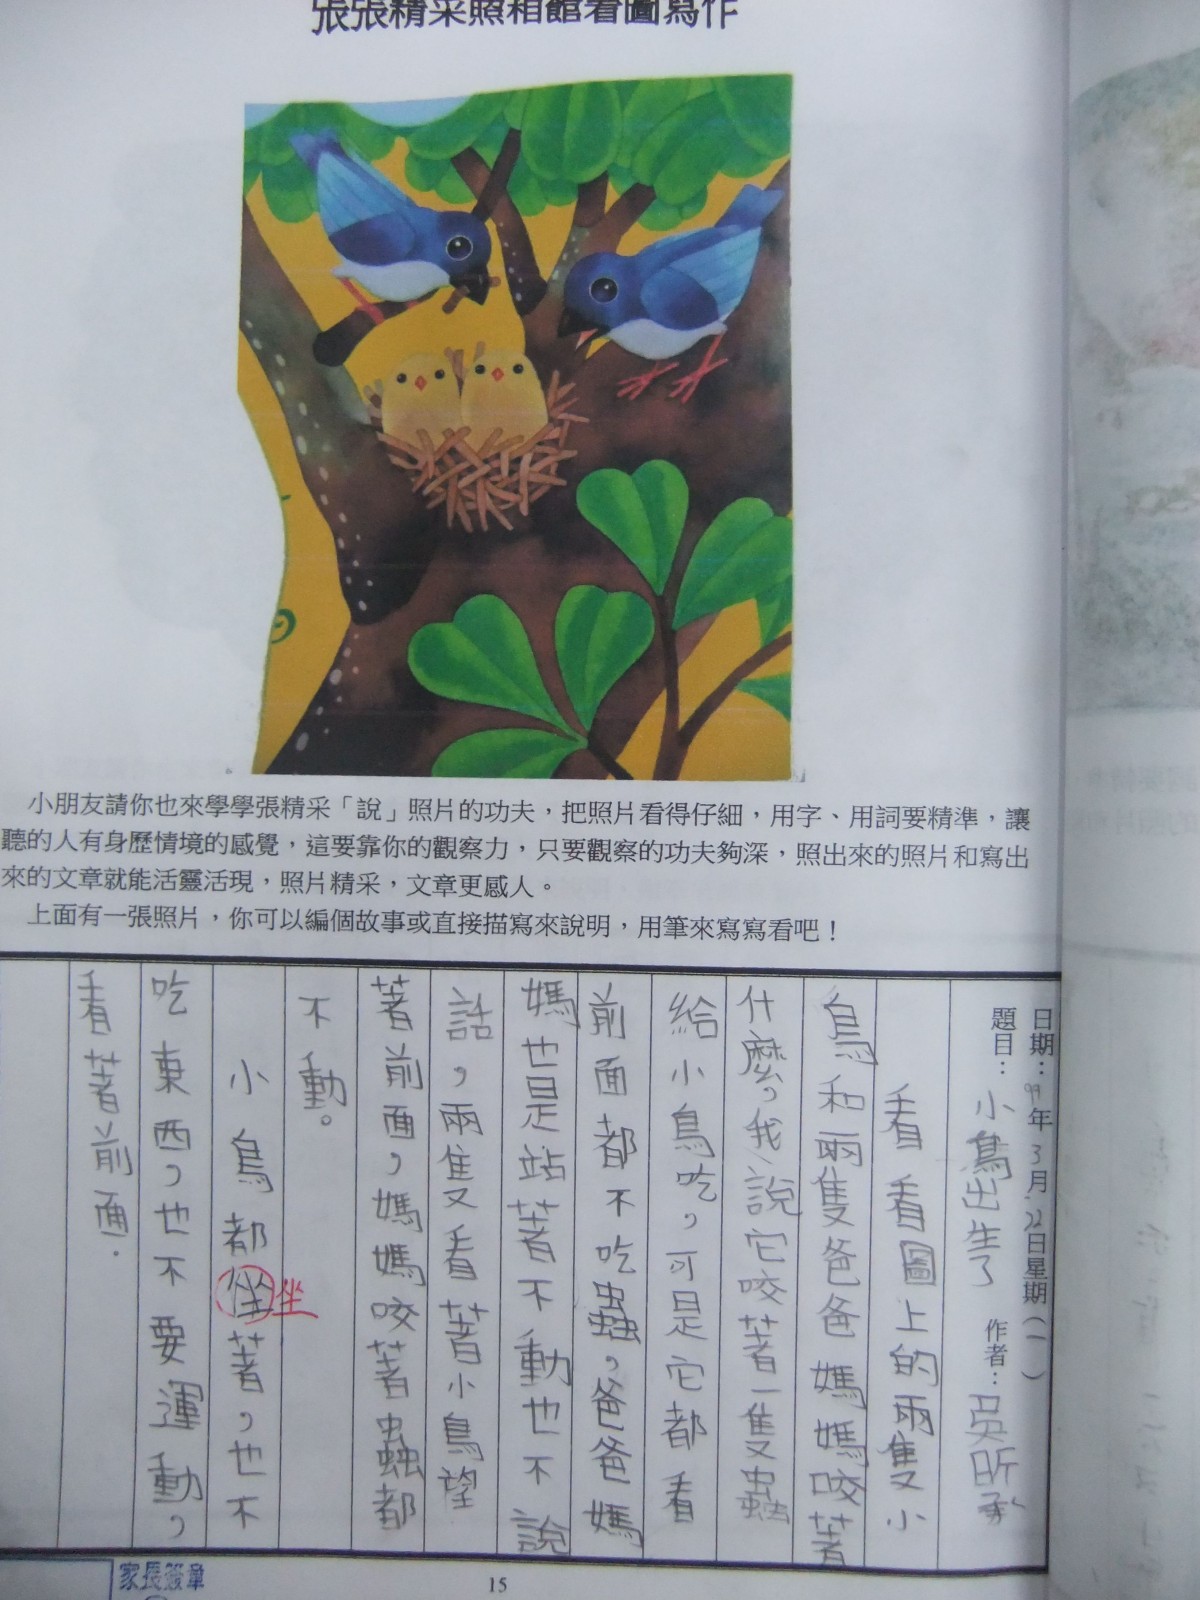 張張精采照相館看圖寫作
小朋友請你也來學學張精采「說」照片的功夫，把照片看得仔細，用字、用詞要精準，讓
聽的人有身歷情境的感覺，這要靠你的觀察力，只要觀察的功夫夠深，照出來的照片和寫出
來的文章就能活靈活現，照片精采，文章更感人。
上面有一張照片，你可以編個故事或直接描寫來說明，用筆來寫寫看吧！
日期：99年3月22日星期（一）
題目：小鳥出生了 作者：吳昕承
看看圖上的兩隻小
鳥和兩隻爸爸媽媽咬著
什麼，我說它咬著一隻蟲
給小鳥吃，可是它都看
前面都不吃蟲，爸爸媽
媽也是站著不動也不說
話，兩隻又看著小鳥望
著前面，媽媽咬著蟲都
不動。
小鳥都坐著，也不
坐
吃東西，也不要運動，
看著前面．
家長簽章
15